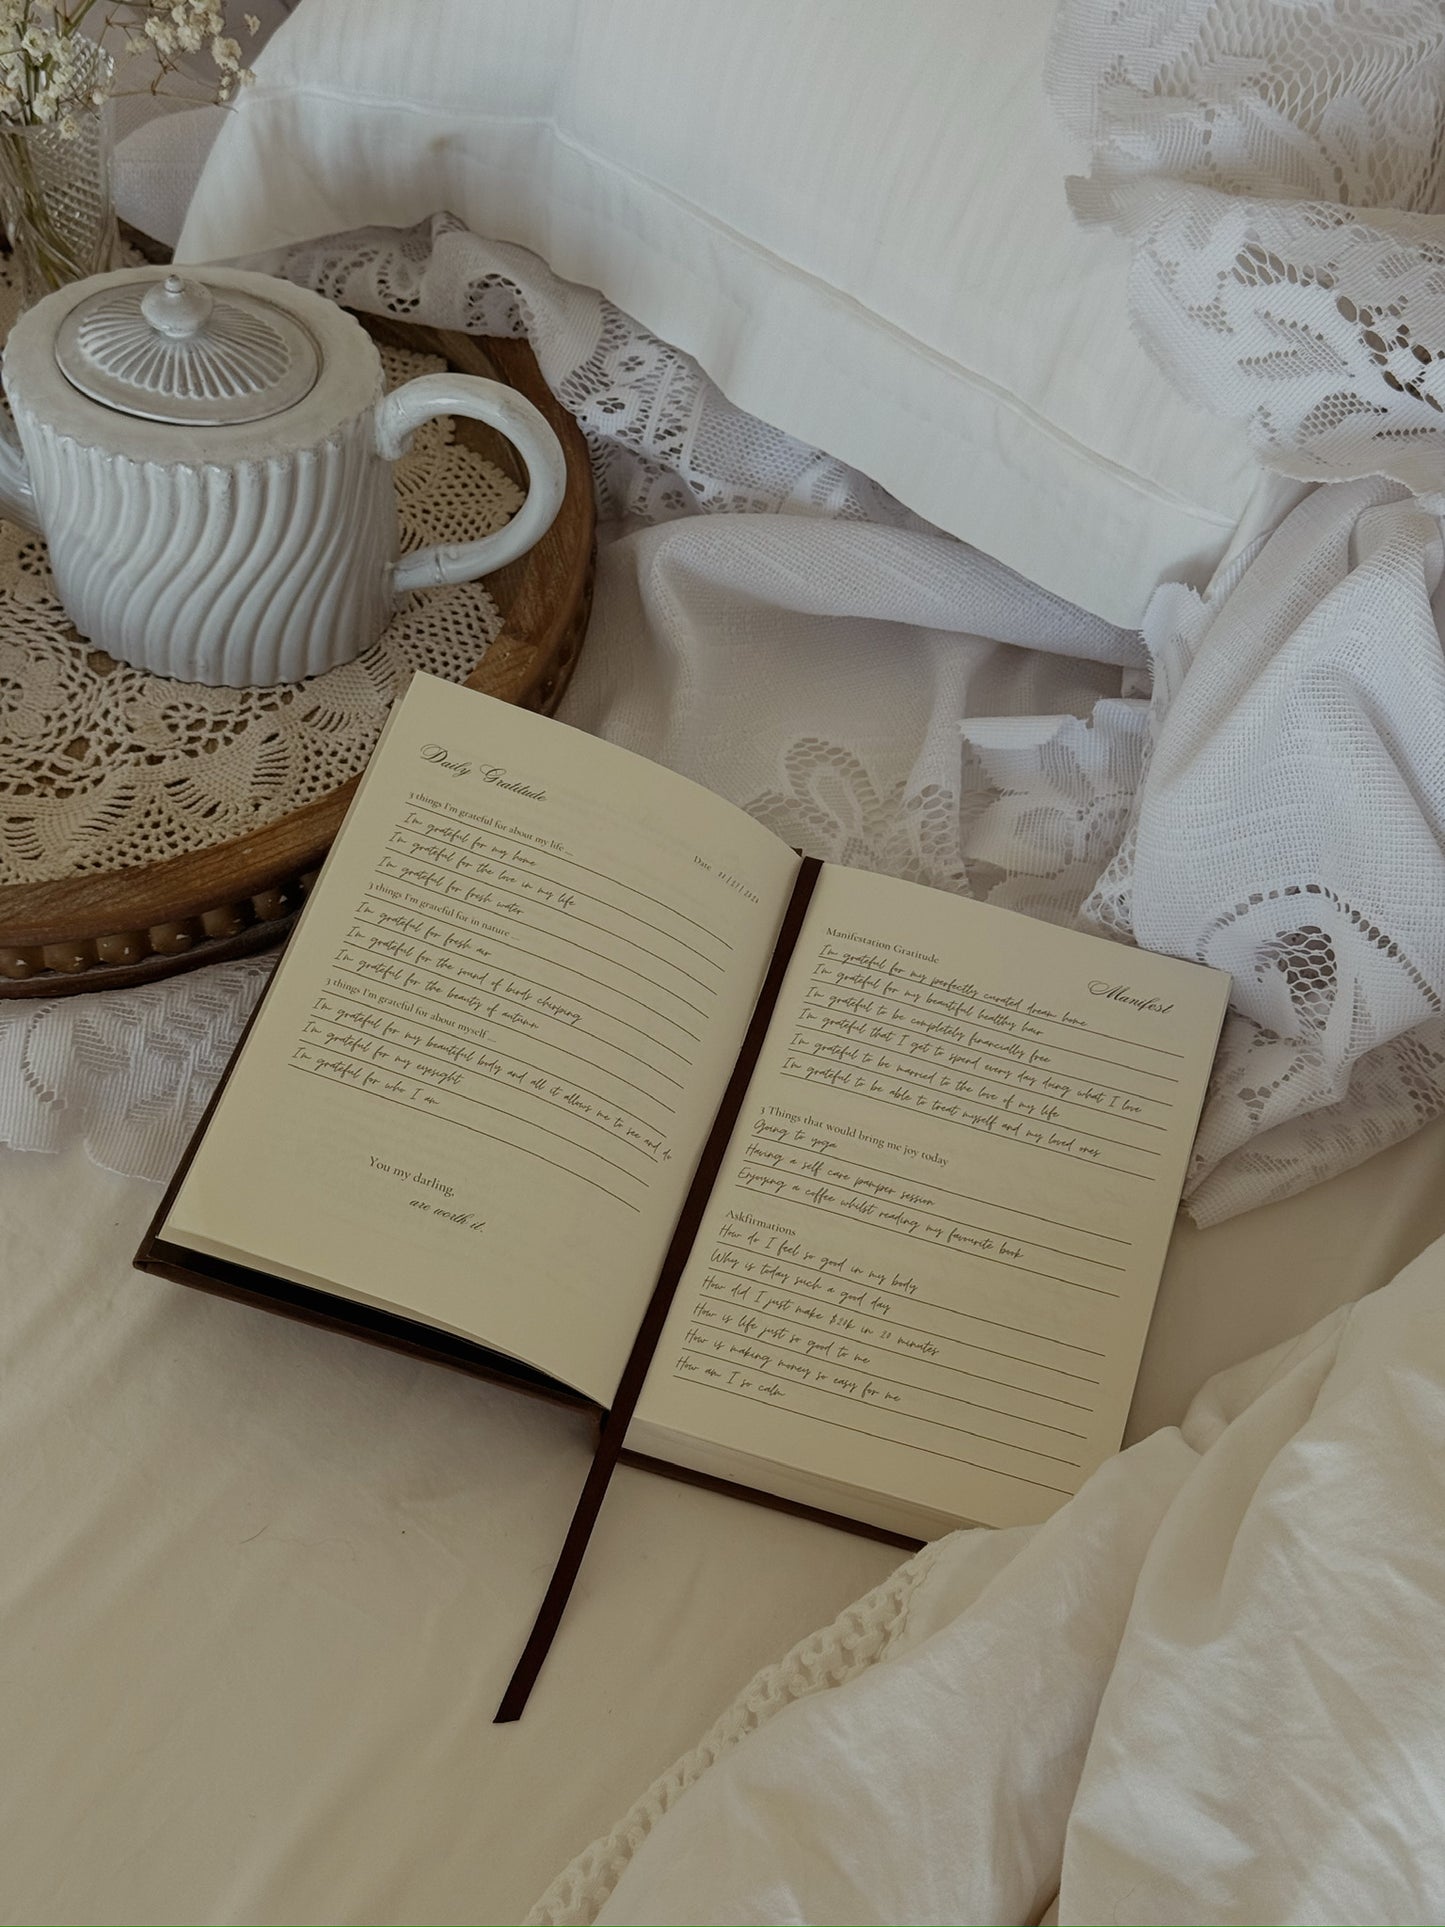 Daily Gratitude
Date
3 things I'm grateful for about my life ...
I'm grateful for my home
I'm grateful for the love in my life
I'm grateful for fresh water
3 things I'm grateful for in nature ...
I'm grateful for fresh air
I'm grateful for the sound of birds chirping
I'm grateful for the beauty of autumn
3 things I'm grateful for about myself ...
I'm grateful for my beautiful body and all it allows me to see and do
I'm grateful for my eyesight
I'm grateful for who I am
You my darling,
are worth it.
Manifest
Manifestation Gratitude
I'm grateful for my perfectly curated dream home
I'm grateful for my beautiful healthy hair
I'm grateful to be completely financially free
I'm grateful that I get to spend every day doing what I love
I'm grateful to be married to the love of my life
I'm grateful to be able to treat myself and my loved ones
3 Things that would bring me joy today
Going to yoga
Having a self care pamper session
Enjoying a coffee whilst reading my favourite book
Askfirmations
How do I feel so good in my body
Why is today such a good day
How did I just make $20k in 20 minutes
How is life just so good to me
How is making money so easy for me
How am I so calm